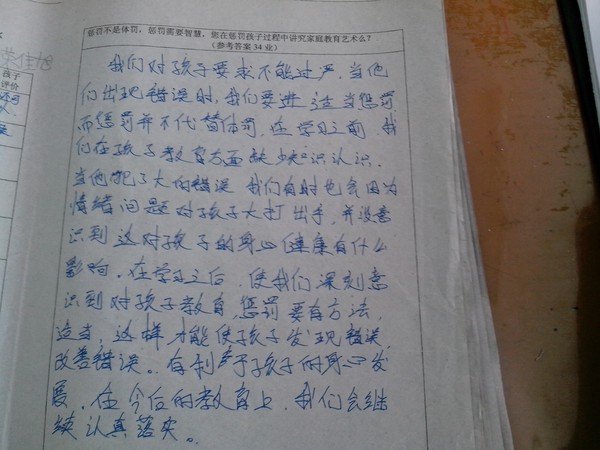 惩罚不是体罚，惩罚需要智慧，您在惩罚孩子过程中讲究家庭教育艺术么？
（参考答案34业）
孩子
评价
我们对孩子要求不能过严，当他
们出现错误时，我们要进适当惩罚
而惩罚并不代替体罚，在学习之前，我
们在孩子教育方面缺少知识认识，
当他犯了大的错误 我们有时也会因为
情绪问题对孩子大打出手，并没意
识到这对孩子的身心健康有什么
影响。在学习之后，使我们深刻意
识到对孩子教育，惩罚要有方法，
适当，这样才能使孩子发现错误，
改善错误。有利于孩子的身心发
展，在今后的教育上，我们会继
续认真落实。